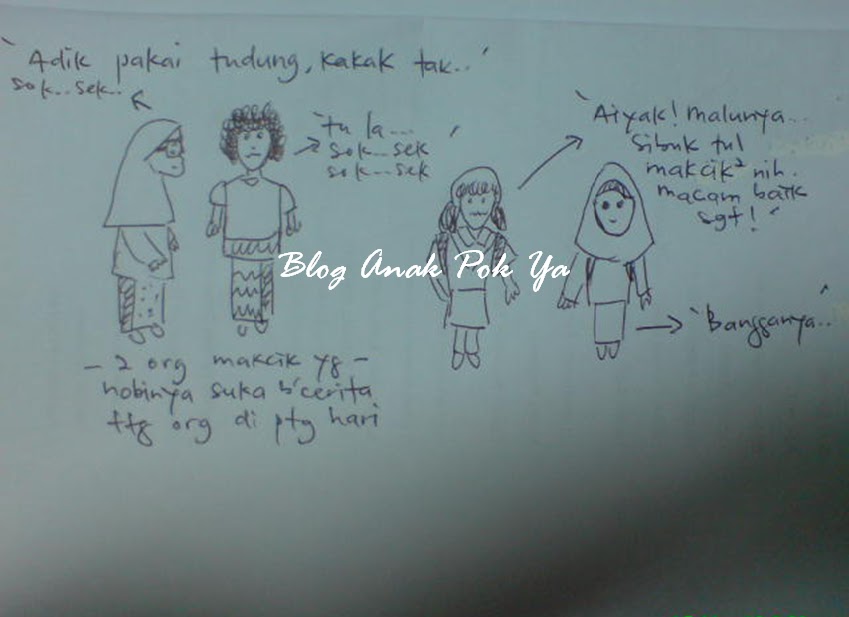 'Adik pakai tudung, kakak tak..'
sok..sek..
'tu la... '
sok...sek
sok...sek
'Aiyak! malunya...
sibuk tul
makcik² nih.
macam baik
sgt!'
Blog Anak Pok Ya
'Bangganya..'
- 2 org makcik yg -
hobinya suka b'cerita
ttg org di ptg hari